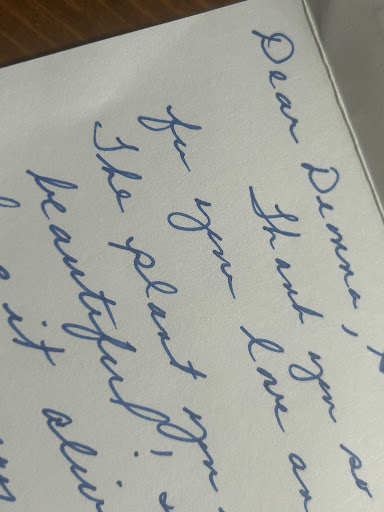 Dear Donna,
Thank you so
for you love an
The plant you
beautiful!
it aliv